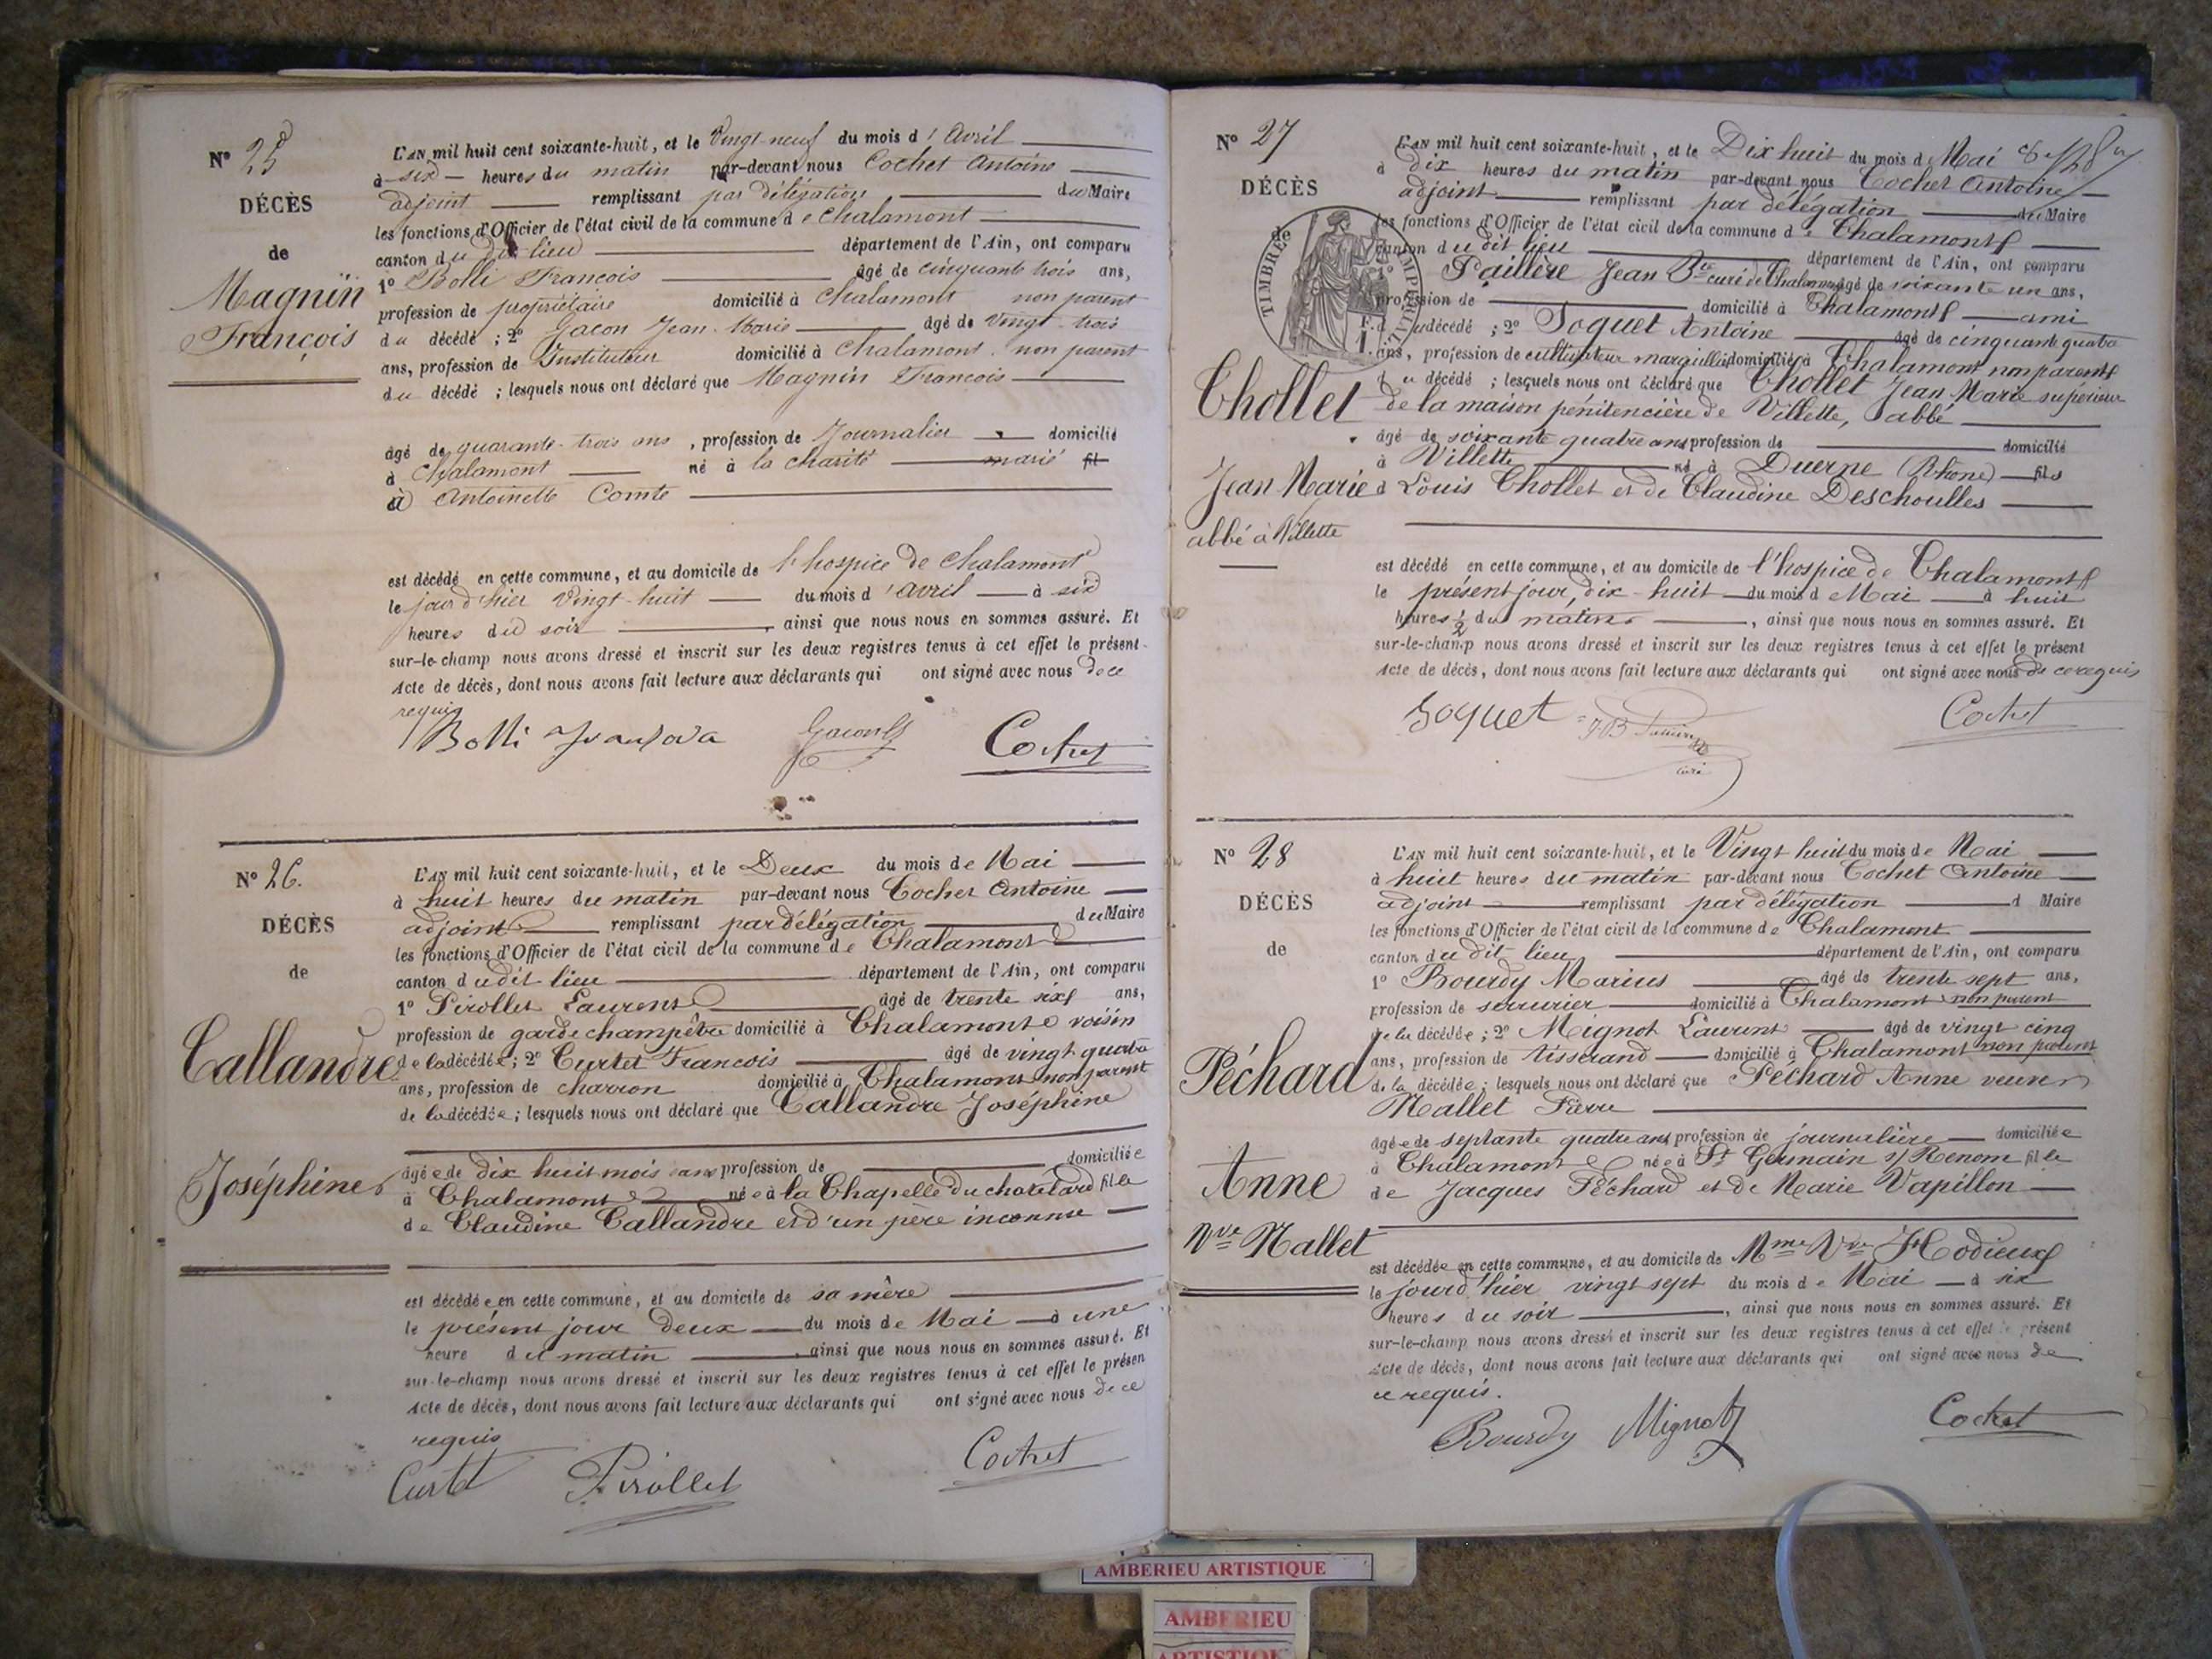 N° 25
DÉCÈS
de
Magnin
François
L'AN mil huit cent soixante-huit, et le Vingt-neuf du mois d'Avril
à six heures du matin par-devant nous Cochet Antoine
adjoint remplissant par délégation du Maire
les fonctions d'Officier de l'état civil de la commune de Chalamont
canton du dit lieu département de l'Ain, ont comparu
1° Bolli François âgé de cinquante trois ans,
profession de propriétaire domicilié à Chalamont non parent
du décédé ; 2° Gacon Jean-Marie âgé de Vingt-trois
ans, profession de Instituteur domicilié à Chalamont non parent
du décédé ; lesquels nous ont déclaré que Magnin François
âgé de quarante-trois ans, profession de Journalier domicilié
à Chalamont né à la charité marié fil
à Antoinette Comte
est décédé en cette commune, et au domicile de l'hospice de Chalamont
le jour d'hier Vingt-huit du mois d'avril à six
heures du soir, ainsi que nous nous en sommes assuré. Et
sur-le-champ nous avons dressé et inscrit sur les deux registres tenus à cet effet le présent
Acte de décès, dont nous avons fait lecture aux déclarants qui ont signé avec nous de ce
requis
Bolli Cochet
N° 26.
DÉCÈS
de
Callandre
Joséphine
L'AN mil huit cent soixante-huit, et le Deux du mois de Mai
à huit heures du matin par-devant nous Cochet Antoine
adjoint remplissant par délégation du Maire
les fonctions d'Officier de l'état civil de la commune de Chalamont
canton du dit lieu département de l'Ain, ont comparu
1° Pirollet Laurent âgé de trente six ans,
profession de garde champêtre domicilié à Chalamont voisin
de la décédée ; 2° Curtet François âgé de vingt quatre
ans, profession de charron domicilié à Chalamont non parent
de la décédée ; lesquels nous ont déclaré que Callandre Joséphine
âgée de dix huit mois ans profession de domiciliée
à Chalamont née à la Chapelle du chatelard fille
de Claudine Callandre et d'un père inconnu
est décédée en cette commune, et au domicile de sa mère
le présent jour deux du mois de Mai à une
heure du matin, ainsi que nous nous en sommes assuré. Et
sur-le-champ nous avons dressé et inscrit sur les deux registres tenus à cet effet le présen
Acte de décès, dont nous avons fait lecture aux déclarants qui ont signé avec nous de ce
requis
Curtet Pirollet Cochet
N° 27
DÉCÈS
de
TIMBRE IMPERIAL
Chollet
Jean Marie
abbé à Villette
L'AN mil huit cent soixante-huit, et le Dix huit du mois de Mai
à dix heures du matin par-devant nous Cochet Antoine
adjoint remplissant par délégation du Maire
les fonctions d'Officier de l'état civil de la commune de Chalamont
canton du dit lieu département de l'Ain, ont comparu
1° Paillère Jean Bte curé de Chalamont âgé de soixante un ans,
profession de domicilié à Chalamont ami
du décédé ; 2° Soquet Antoine âgé de cinquante quatre
ans, profession de cultivateur marguillier domicilié à Chalamont non parent
du décédé ; lesquels nous ont déclaré que Chollet Jean Marie supérieur
de la maison pénitencière de Villette, abbé
âgé de soixante quatre ans profession de domicilié
à Villette né à Duerne (Rhone) fils
de Louis Chollet et de Claudine Deschoulles
est décédé en cette commune, et au domicile de l'hospice de Chalamont
le présent jour, dix-huit du mois de Mai à huit
heures 1/2 du matin, ainsi que nous nous en sommes assuré. Et
sur-le-champ nous avons dressé et inscrit sur les deux registres tenus à cet effet le présent
Acte de décès, dont nous avons fait lecture aux déclarants qui ont signé avec nous de ce requis
Soquet Cochet
curé
N° 28
DÉCÈS
de
Péchard
Anne
Vve Mallet
L'AN mil huit cent soixante-huit, et le Vingt huit du mois de Mai
à huit heures du matin par-devant nous Cochet Antoine
adjoint remplissant par délégation d Maire
les fonctions d'Officier de l'état civil de la commune de Chalamont
canton du dit lieu département de l'Ain, ont comparu
1° Bourdy Marius âgé de trente sept ans,
profession de serrurier domicilié à Chalamont non parent
de la décédée ; 2° Mignot Laurent âgé de vingt cinq
ans, profession de tisserand domicilié à Chalamont non parent
de la décédée ; lesquels nous ont déclaré que Péchard Anne veuve
Mallet Pierre
âgée de septante quatre ans profession de journalière domiciliée
à Chalamont née à St Germain s/ Renom fille
de Jacques Péchard et de Marie Vapillon
est décédée en cette commune, et au domicile de Mme Vve Hodieux
le jour d'hier vingt sept du mois de Mai à six
heures du soir, ainsi que nous nous en sommes assuré. Et
sur-le-champ nous avons dressé et inscrit sur les deux registres tenus à cet effet le présent
Acte de décès, dont nous avons fait lecture aux déclarants qui ont signé avec nous de
ce requis.
Bourdy Mignot Cochet
AMBERIEU ARTISTIQUE
AMBERIEU
ARTISTIQUE